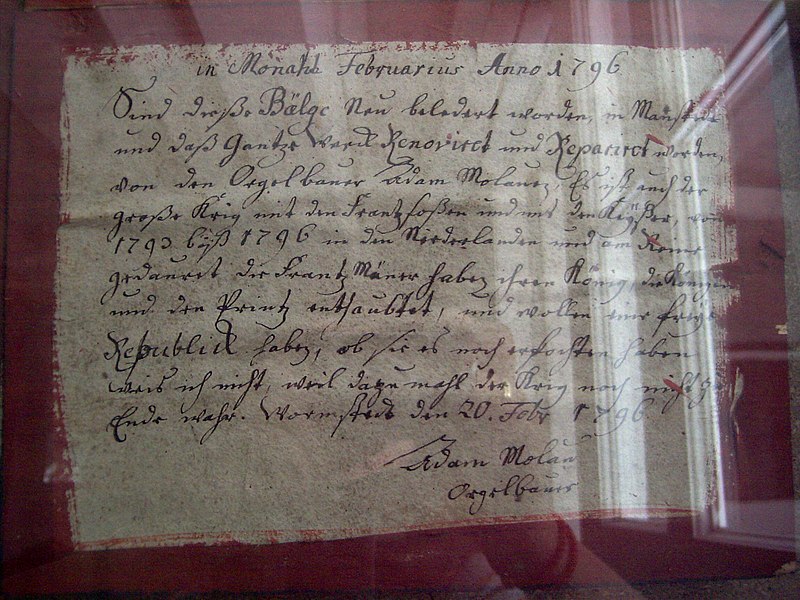 in Monaht Februarius Anno 1796
Sind dieße Bälge Neu beledert worden, in Manstedt
und daß Gantze Werck Renovirct und Reparirct worden,
von den Orgelbauer Adam Molauen, Es ist auch der
große Krig mit den Frantzsoßen und mit den Keyßer, von
1793 biß 1796 in den Niederlanden und am Reine
gedauret die Frantz Mäner haben ihren König, die Königen
und den Printz enthaubtet, und wollen eine freye
Republick haben, ob sie es noch erfochten haben
weis ich nicht, weil dazumahl der Krig noch nicht zu
Ende wahr. Wormstedt den 20. Febr 1796
Adam Molau
Orgelbauer